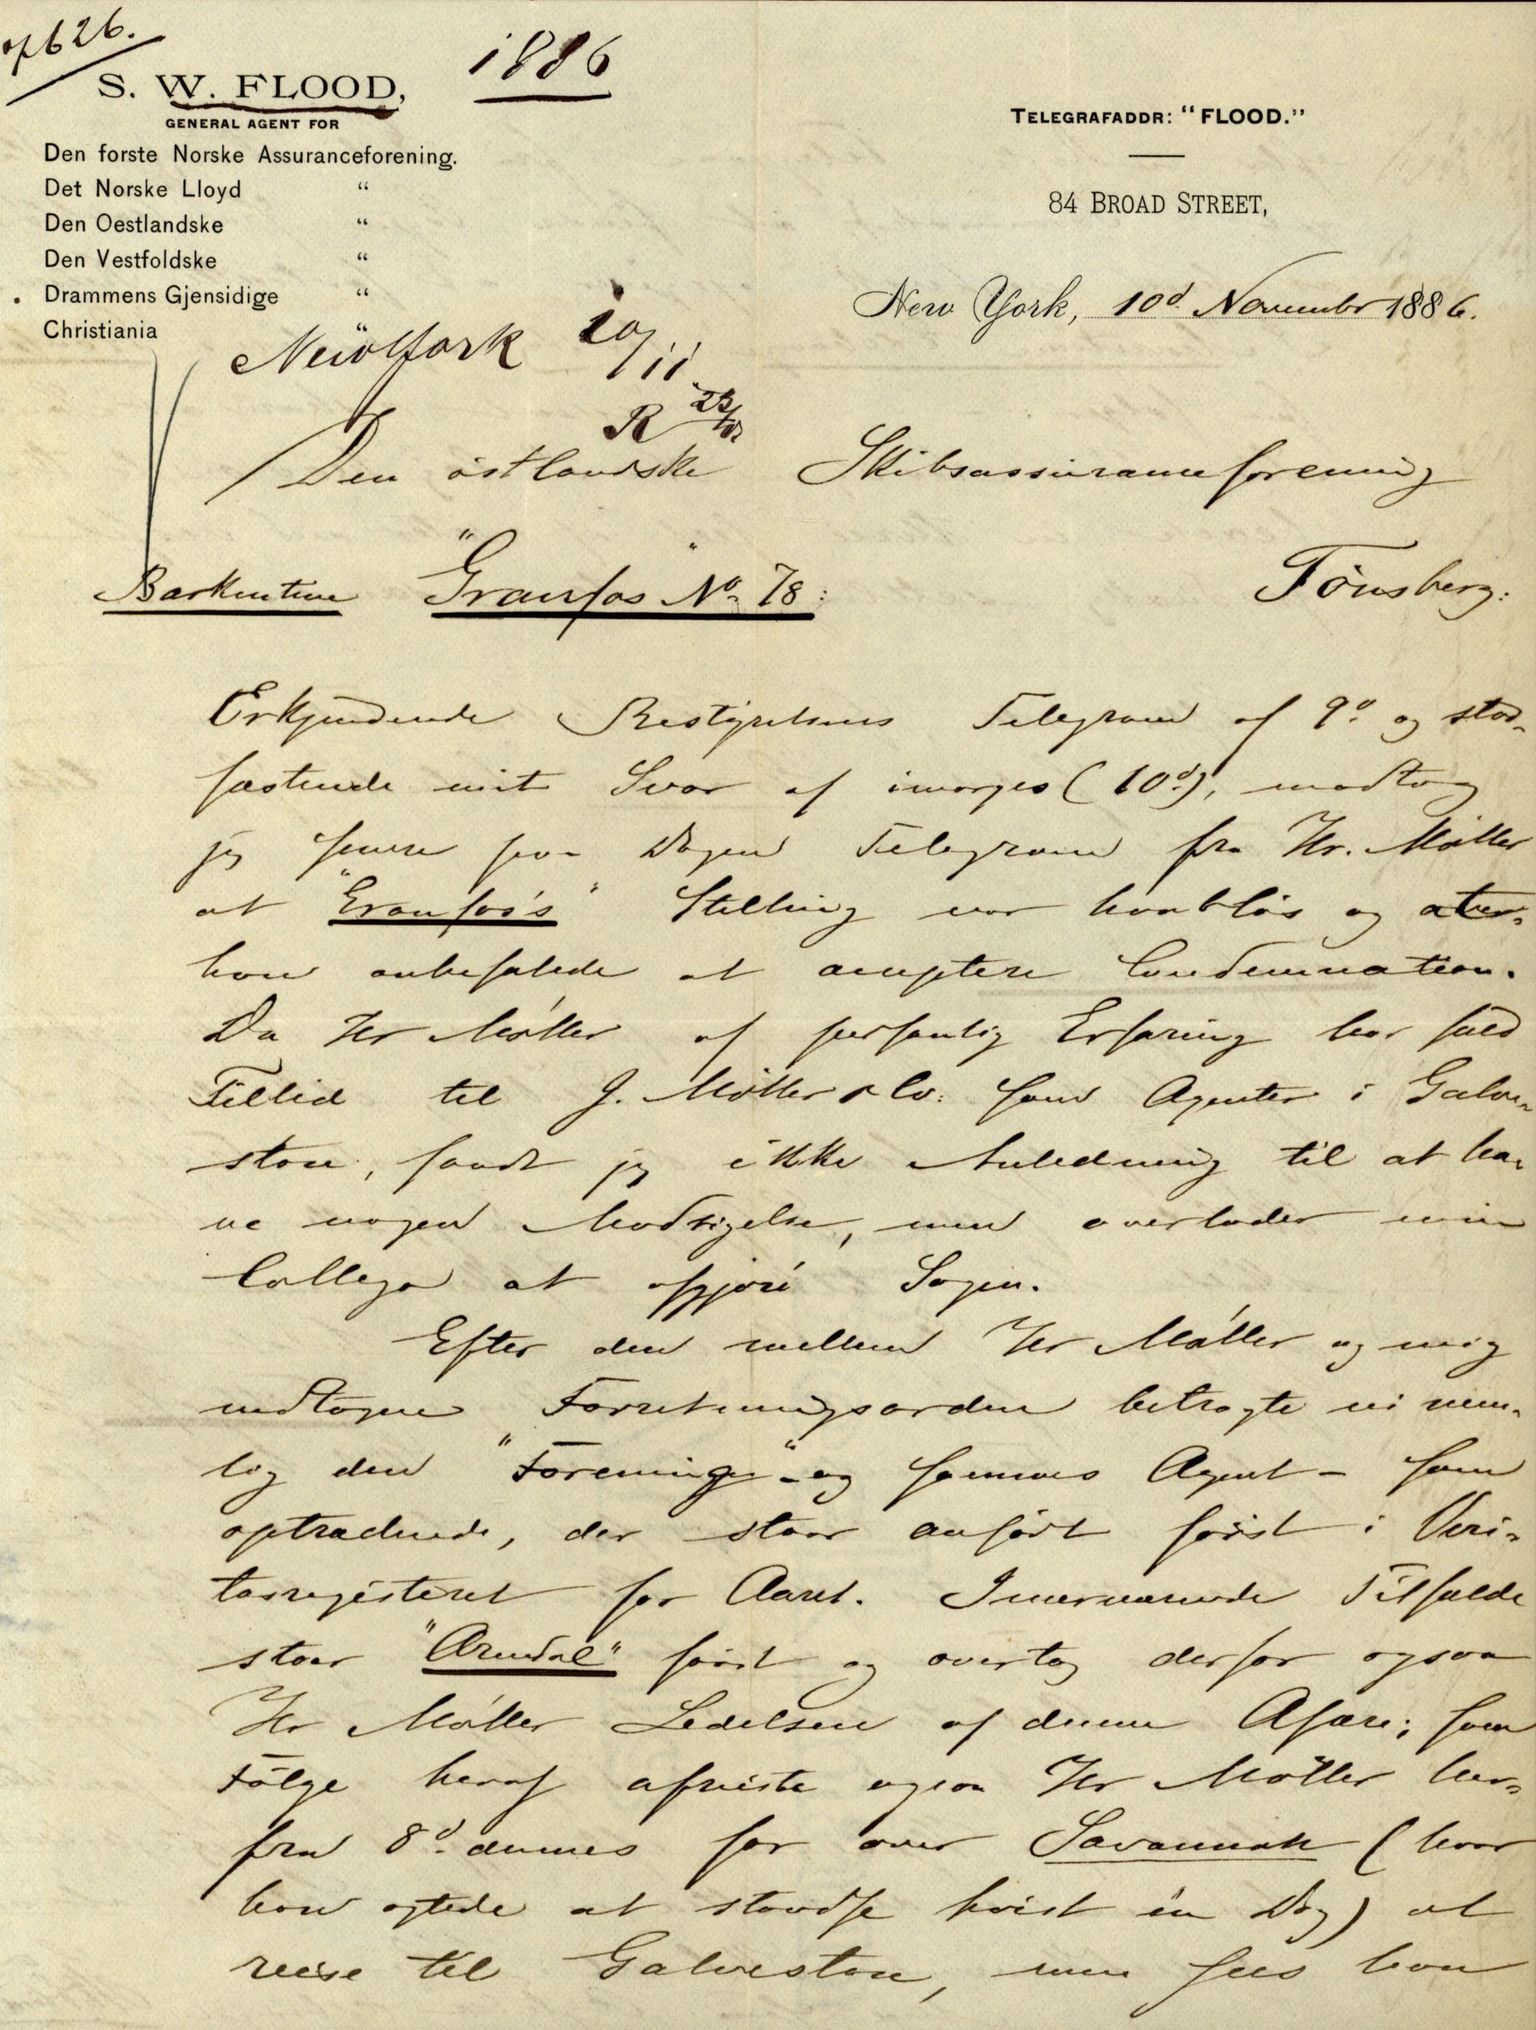 626.
1886
S. W. FLOOD,
GENERAL AGENT FOR
Den forste Norske Assuranceforening.
Det Norske Lloyd "
Den Oestlandske "
Den Vestfoldske "
Drammens Gjensidige "
Christiania
TELEGRAFADDR: "FLOOD."
84 BROAD STREET,
New York, 10d November 1886.
NewYork 10/11
R 23/11
Den østlandske Skibsassuranceforening
Tønsberg:
Barkentine "Granfos" No 78:
Erkjendende Bestyrelsens Telegram af 9d og stad-
fæstende mit Svar af imorges (10d), modtog
jeg senere paa Dagen Telegram fra Hr. Møller
at "Granfos's" Stilling var haabløs og at
han anbefalede at acceptere Condemnation.
Da Hr Møller af personlig Erfaring har fuld
Tillid til J. Møller & Co. som Agenter i Galve-
ston, fandt jeg ikke Anledning til at ha-
ve nogen Modsigelse, men overlader min
Collega at afgjøre Sagen.
Efter den mellem Hr Møller og mig
vedtagne Forretningsorden betragte vi nem-
lig den "Forening" - og sammes Agent - som
optrædende, der staar anført først i Veri-
tasregisteret for Aaret. I nærværende Tilfælde
staar "Arendal" først og overtog derfor ogsaa
Hr Møller Ledelsen af denne Afære; som
Følge heraf afreiste ogsaa Hr Møller her-
fra 8d dennes for over Savannah (hvor
han agtede at standse høist én Dag) at
reise til Galveston, men saa han